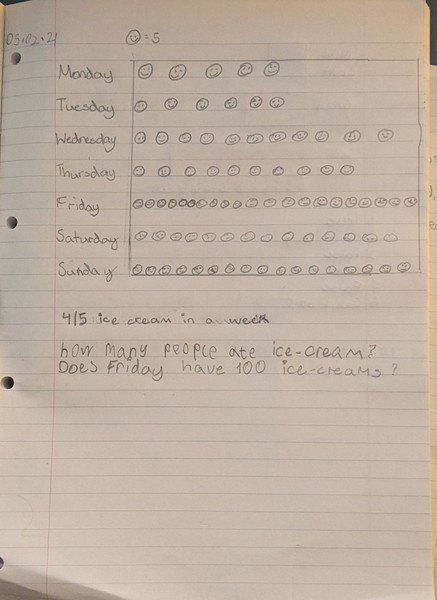 05.02.21
☺=5
Monday
Tuesday
Wednesday
Thursday
Friday
Saturday
Sunday
4/5: ice cream in a week
how many people ate ice-cream?
Does Friday have 100 ice-creams?